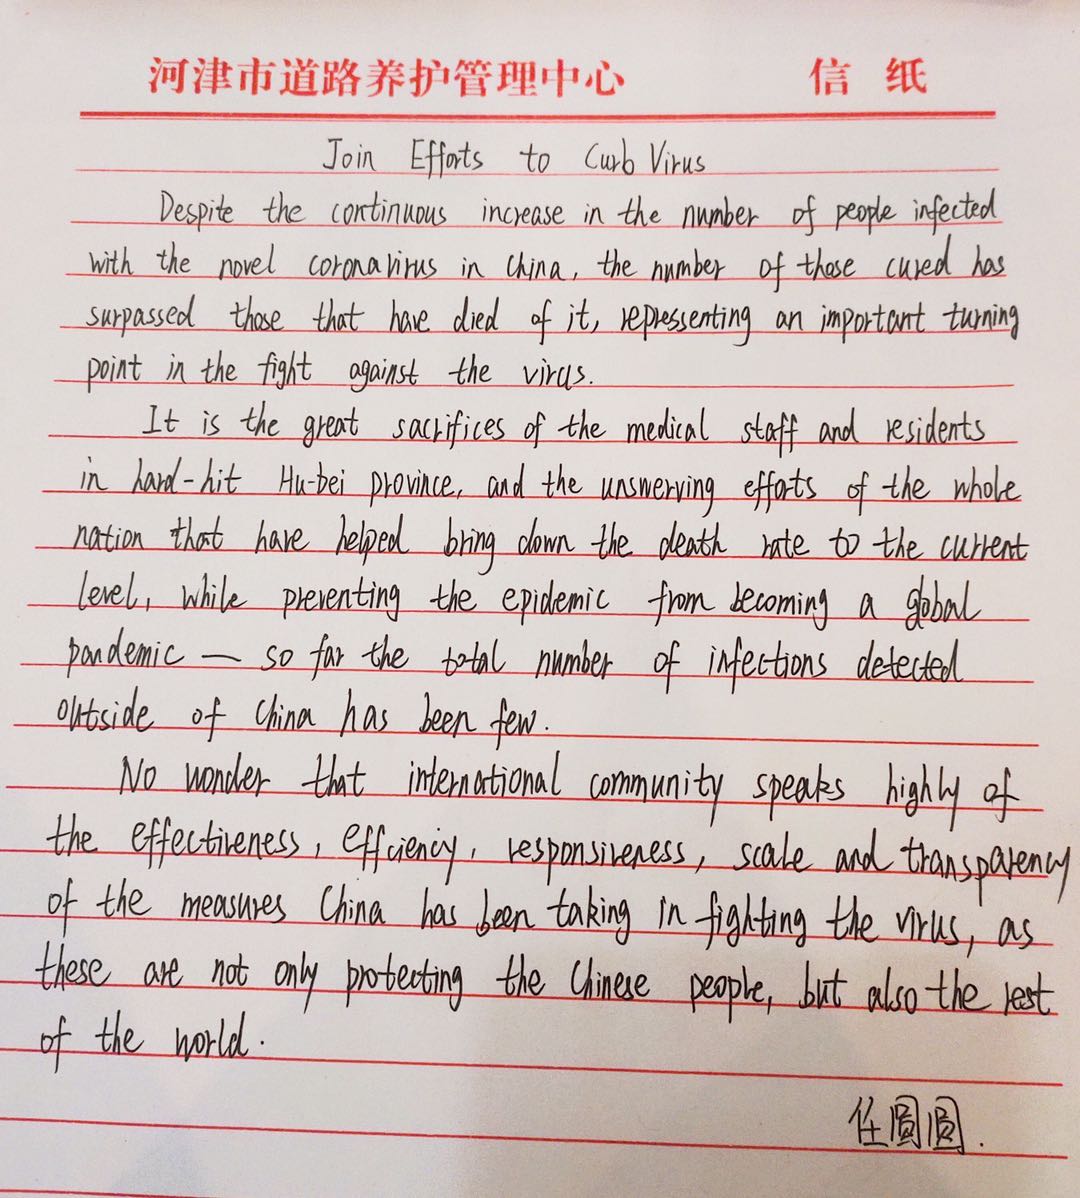 河津市道路养护管理中心 信纸
Join Efforts to Curb Virus
Despite the continuous increase in the number of people infected
with the novel coronavirus in China, the number of those cured has
surpassed those that have died of it, repressenting an important turning
point in the fight against the virus.
It is the great sacrifices of the medical staff and residents
in hard-hit Hu-bei province, and the unswerving efforts of the whole
nation that have helped bring down the death rate to the current
level, while preventing the epidemic from becoming a global
pandemic — so far the total number of infections detected
outside of China has been few.
No wonder that international community speaks highly of
the effectiveness, effciency, responsiveness, scale and transparency
of the measures China has been taking in fighting the virus, as
these are not only protecting the Chinese people, but also the rest
of the world.
任圓圓.